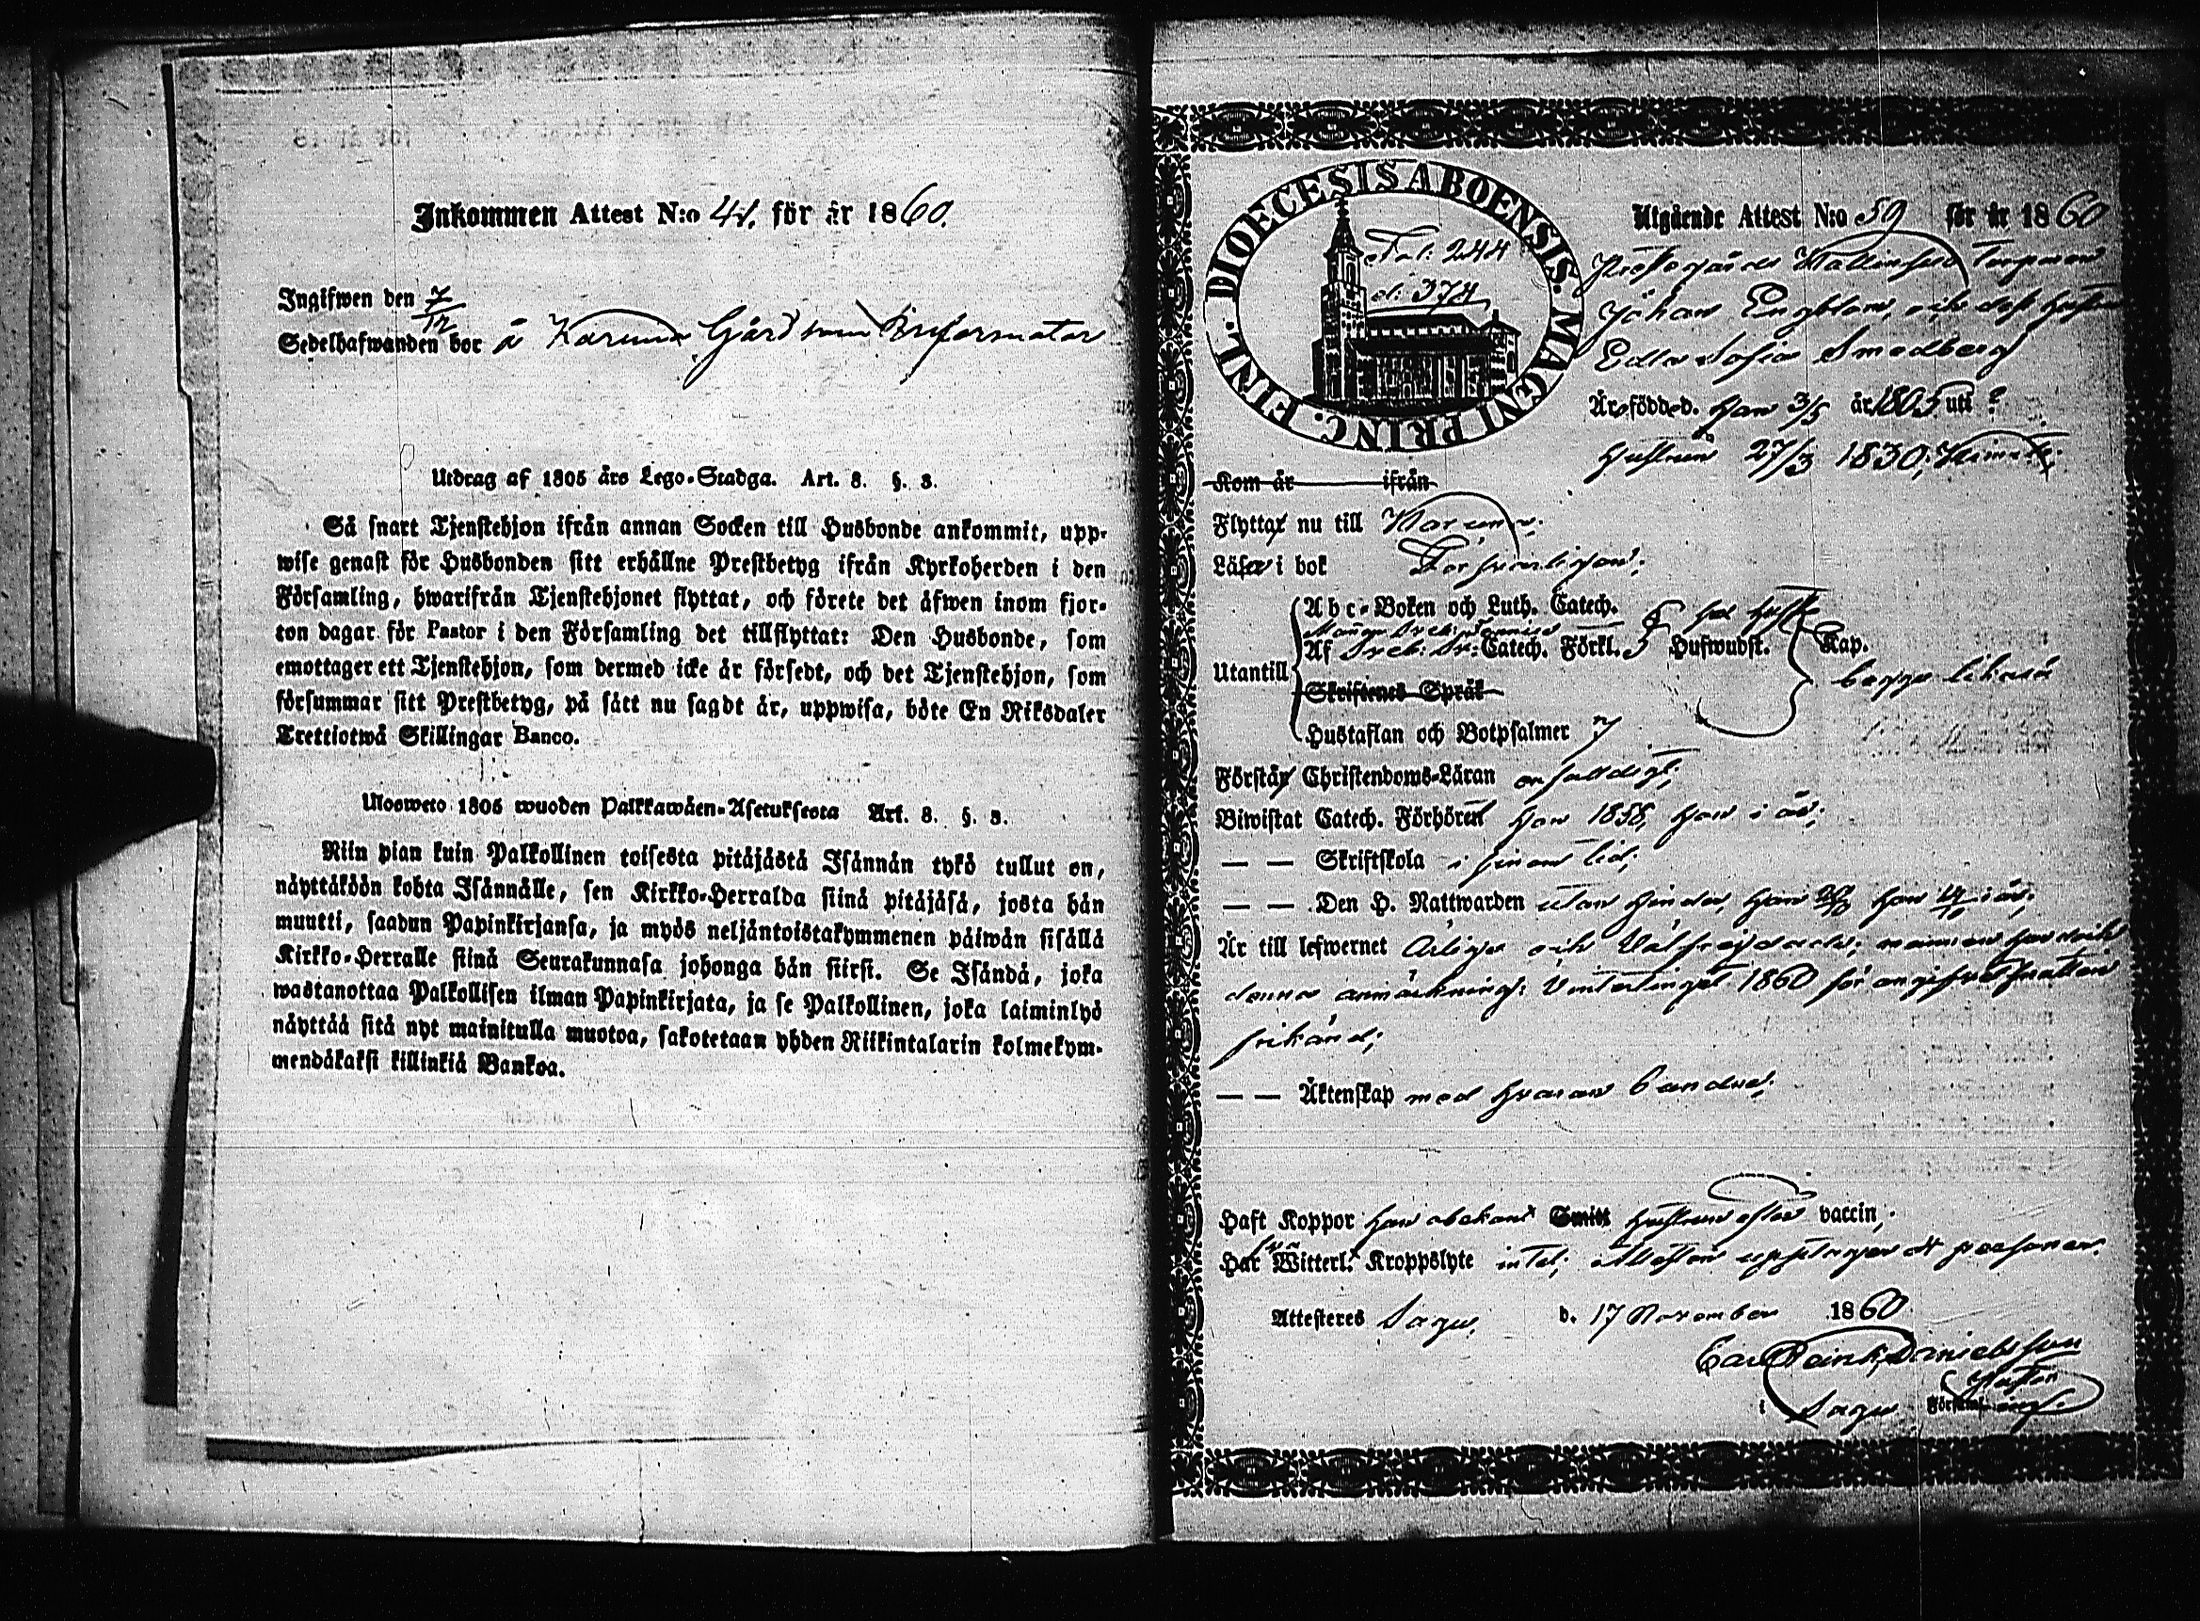 Inkommen Attest N:o 41. för år 1860.
Ingifwen den 7/12
Sedelhafwanden bor å Karuna Gård som Informator
Utdrag af 1805 års Lego-Stadga. Art. 8. §. 3.
Så snart Tjenstehjon ifrån annan Socken till Husbonde ankommit, upp-
wise genast för Husbonden sitt erhållne Prestbetyg ifrån Kyrkoherden i den
Församling, hwarifrån Tjenstehjonet flyttat, och förete det äfwen inom fjor-
ton dagar för Pastor i den Församling det tillflyttat: Den Husbonde, som
emottager ett Tjenstehjon, som dermed icke är försedt, och det Tjenstehjon, som
försummar sitt Prestbetyg, på sätt nu sagdt är, uppwisa, böte En Riksdaler
Trettiotwå Skillingar Banco.
Ulosweto 1805 wuoden Palkkawäen-Asetuksesta Art. 8. §. 3.
Niin pian kuin Palkollinen toisesta pitäjästä Isännän tykö tullut on,
näyttäköön kohta Isännälle, sen Kirkko-Herralda siinä pitäjäsä, josta hän
muutti, saadun Papinkirjansa, ja myös neljäntoistakymmenen päiwän sisällä
Kirkko-Herralle siinä Seurakunnasa johonga hän siirsi. Se Isändä, joka
wastanottaa Palkollisen ilman Papinkirjata, ja se Palkollinen, joka laiminlyö
näyttää sitä nyt mainitulla muotoa, sakotetaan yhden Riikintalarin kolmekym-
mendäkaksi killinkiä Bankoa.
DIOECESIS ABOENSIS. MAGNI PRINC. FINL.
Fol: 244
d: 374
Utgående Attest N:o 59 för år 1860
Johan Engblom, och dess hustru
Edla Sofia Smedberg
Äro födde d. Han 3/5 år 1805 uti ?
Hustrun 27/3 1830
Kom år ifrån
Flytta nu till Karuna.
Läsa i bok Försvarligen;
Utantill
Abc-Boken och Luth. Catech.
Af Catech. Förkl. 5 Hufwudst. Kap.
begge likaså
Skriftenes Språk
Hustaflan och Botpsalmer
Förstå Christendoms-Läran enfaldigt;
Biwistat Catech. Förhören Han 1858, Hon i år;
— — Skriftskola i sinom tid;
— — Den H. Nattwarden utan hinder, Hon i år;
Är till lefwernet ärliga och
denna anmärkning: Vintertinget 1860 för
frikänd;
— — Äktenskap med hvarandra;
Haft Koppor Han obekant Smitt Hustrun efter vaccin;
Har Witterl. Kroppslyte intet; Attesten upptager personer.
Attesteres Sagu, d. 17 November 1860
Danielsson
Pastor
i Sagu Församling.